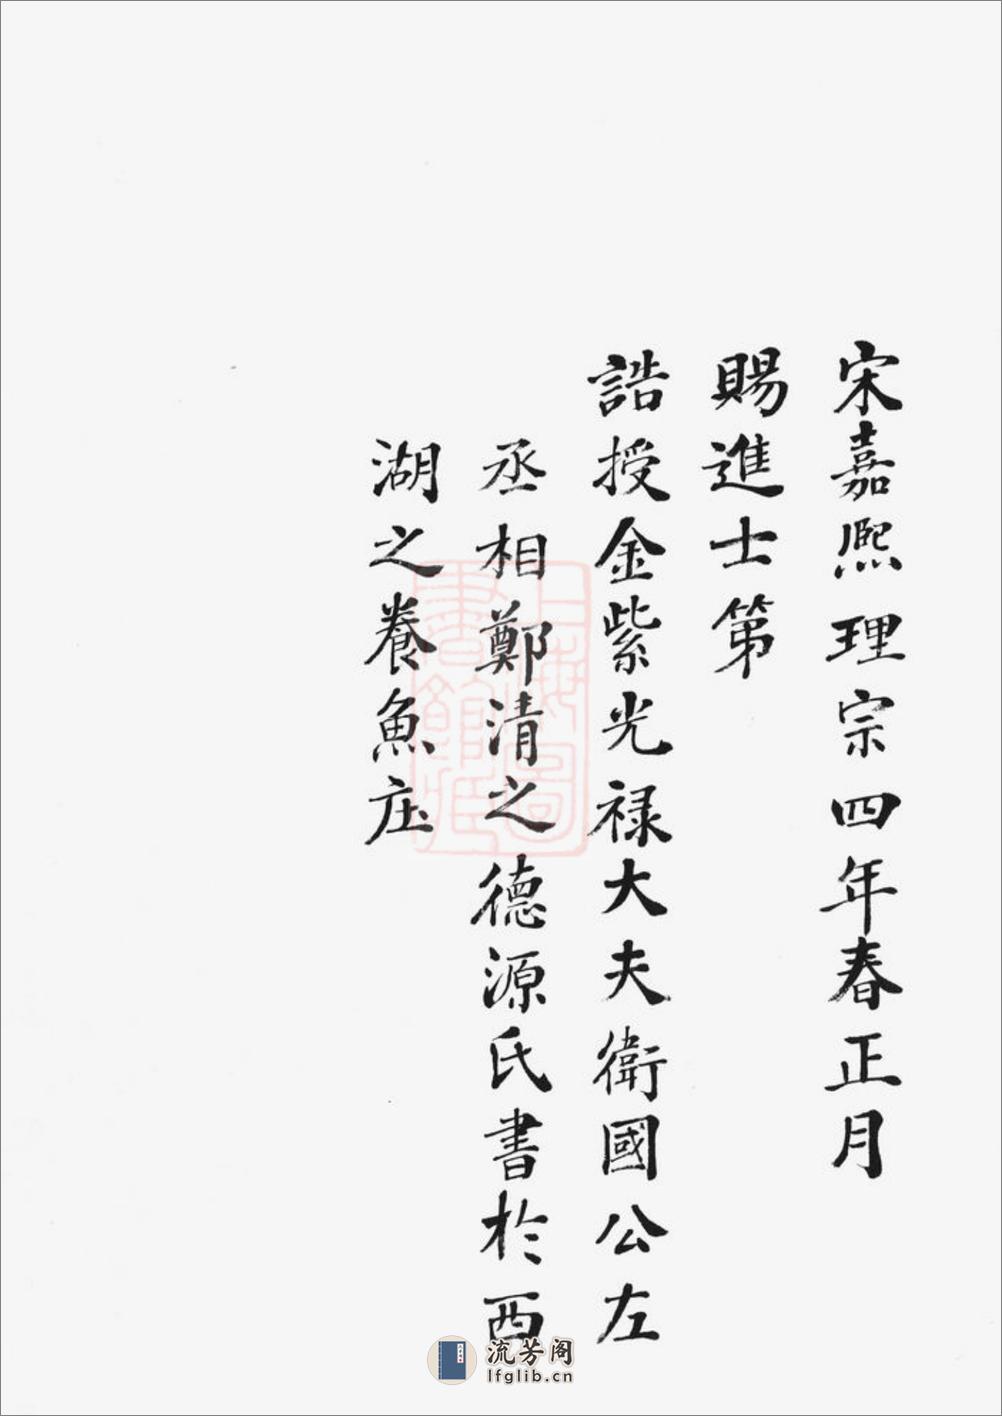 宋嘉熈理宗四年春正月
賜進士第
誥授金紫光禄大夫衛國公左
丞相鄭清之德源氏書於西
湖之養魚庄
上海圖書館藏
流芳阁
lfglib.cn